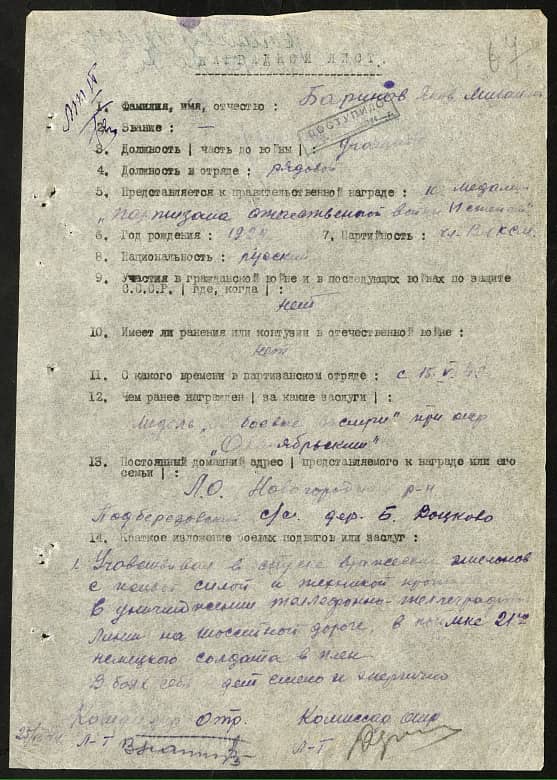 НАГРАДНОЙ ЛИСТ
67
1. Фамилия, имя, отчество : Баринов Яков Михайл
ПОСТУПИЛО
2. Звание : —
3. Должность | часть до войны | :
4. Должность в отряде : рядовой
5. Представляется к правительственной награде : к медали
"Партизана отечественной войны II степени"
6. Год рождения : 1924 7. Партийность : чл. ВЛКСМ
8. Национальность : русский
9. Участия в гражданской войне и в последующих войнах по защите
С.С.С.Р. | где, когда | :
нет
10. Имеет ли ранения или контузии в отечественной войне :
нет
11. С какого времени в партизанском отряде : с 15.
12. Чем ранее награжден | за какие заслуги | :
Медаль "За боевые заслуги" при отр
"Октябрьский"
13. Постоянный домашний адрес | представляемого к награде или его
семьи | :
Л.О. Новогородский р-н
Подберезовский с/с. дер. Б.
14. Краткое изложение боевых подвигов или заслуг :
1. Участвовал в спуске вражеских эшелонов
с живой силой и техникой
В уничтожении теллефонно-теллеграфной
линии на шоссейной дороге, в поимке 21го
немецкого солдата в плен
В боях себя ведет смело и энергично
Командир отр. Комиссар отр
Л-Т Л-Т